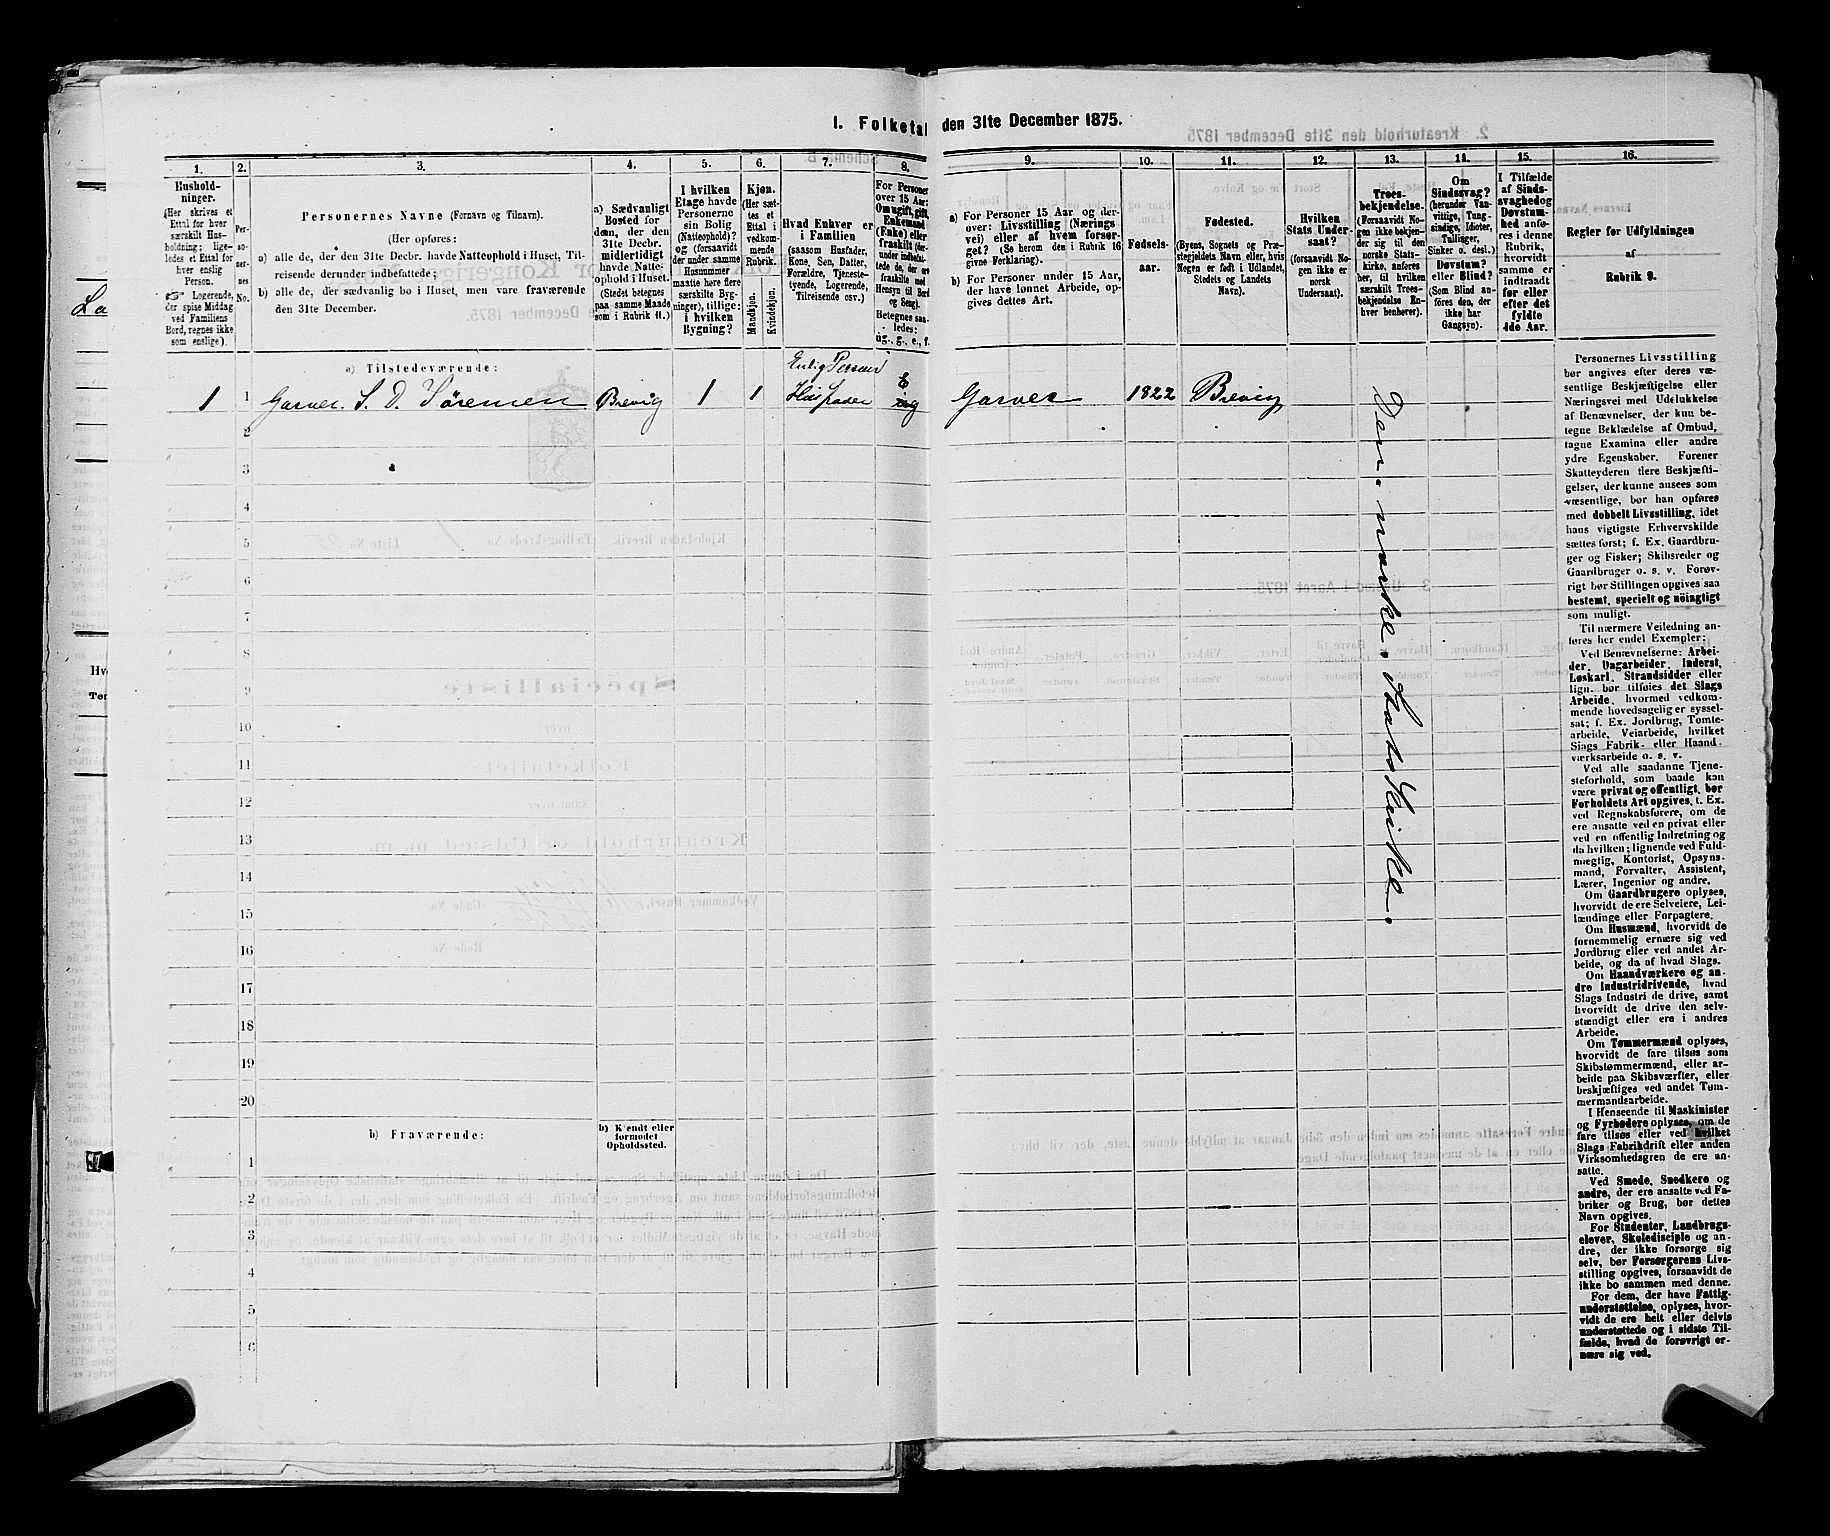 1. Folketal den 31te December 1875.
1.
2.
3.
4.
5.
6.
7.
8.
9.
10.
11.
12.
13.
14.
15.
16.
Hushold-
ninger.
(Her skrives et
Ettal for hver
særskilt Hus-
holdning; lige-
ledes et Ettal for
hver enslig
Person.
☞ Logerende,
der spise Middag
ved Familiens
Bord, regnes ikke
som enslige).
Per-
so-
ner-
nes
No.
Personernes Navne (Fornavn og Tilnavn).
(Her opføres:
a) alle de, der den 31te Decbr. havde Natteophold i Huset, Til-
reisende derunder indbefattede;
b) alle de, der sædvanlig bo i Huset, men vare fraværende
den 31te December.
a) Sædvanligt
Bosted for
dem, der den
31te Decbr.
midlertidigt
havde Natte-
ophold i Huset.
(Stedet betegnes
paa samme Maade
som i Rubrik 11.)
I hvilken
Etage havde
Personerne
sin Bolig
(Natteophold)?
og (forsaavidt
der under samme
Husnummer
maatte høre flere
særskilte Byg-
ninger), tillige:
i hvilken
Bygning?
Kjøn.
(Her sæt-
tes et
Ettal i
vedkom-
mende
Rubrik.
Mandkjøn.
Kvindekjøn.
Hvad Enhver er
i Familien
(saasom Husfader,
Kone, Søn, Datter,
Forældre, Tjeneste-
tyende, Logerende,
Tilreisende osv.)
For Personer
over 15 Aar:
Om ugift, gift,
Enkemand
(Enke) eller
fraskilt (der-
under indbefat-
tede de, der ere
fraskilte med
Hensyn til Bord
og Seng).
Betegnes saa-
ledes:
ug., g., e., f.
a) For Personer 15 Aar og der-
over: Livsstilling (Nærings-
vei) eller af hvem forsør-
get? (Se herom den i Rubrik 16
givne Forklaring).
b) For Personer under 15 Aar,
der have lønnet Arbeide, op-
gives dettes Art.
Fødsels-
aar.
Fødested.
(Byens, Sognets og Præ-
stegjeldets Navn eller, hvis
Nogen er født i Udlandet,
Stedets og Landets
Navn).
Hvilken
Stats Under-
saat?
(forsaavidt No-
gen ikke er
norsk
Undersaat).
Troes-
bekjendelse.
(Forsaavidt No-
gen ikke bekjen-
der sig til den
norske Stats-
kirke, anføres
her, til hvilken
særskilt Troes-
bekjendelse En-
hver henhører).
Om
Sindssvag?
(herunder Van-
vittige, Tung-
sindige, Idioter,
Tullinger,
Sinker o. desl.)
Døvstum?
eller Blind?
(Som Blind an-
føres den, der
ikke har
Gangsyn).
I Tilfælde
af Sinds-
svaghed og
Døvstum-
hed anfø-
res i denne
Rubrik,
hvorvidt
samme er
indtraadt
før eller
efter det
fyldte
4de Aar.
Regler for Udfyldningen
af
Rubrik 9.
a) Tilstedeværende:
Enlig Person
1
1
Garver. S. D. Sørensen
Brevig
1
1
Husfader
E
ug
Garver
1822
Brevig
Den norske Statskirke.
2
3
4
5
6
7
8
9
10
11
12
13
14
15
16
17
18
19
20
b) Fraværende:
b) Kjendt eller
formodet
Opholdssted.
1
2
3
4
5
6
Personernes Livsstilling
bør angives efter deres væ-
sentlige Beskjæftigelse eller
Næringsvei med Udelukkelse
af Benævnelser, der kun be-
tegne Beklædelse af Ombud,
tagne Examina eller andre
ydre Egenskaber. Forener
Skatteyderen flere Beskjæfti-
gelser, der kunne ansees som
væsentlige, bør han opføres
med dobbelt Livsstilling, idet
hans vigtigste Erhvervskilde
sættes først; f. Ex. Gaardbru-
ger og Fisker; Skibsreder og
Gaardbruger o. s. v. Forøv-
rigt bør Stillingen opgives saa
bestemt, specielt og nöiagtigt
som muligt.
Til nærmere Veiledning an-
føres her endel Exempler:
Ved Benævnelserne: Arbei-
der, Dagarbeider, Inderst,
Løskarl, Strandsidder eller
lign. bør tilføies det Slags
Arbeide, hvormed vedkom-
mende hovedsagelig er syssel-
sat; f. Ex. Jordbrug, Tomte-
arbeide, Veiarbeide, hvilket
Slags Fabrik- eller Haand-
værksarbeide o. s. v.
Ved alle saadanne Tjene-
steforhold, som baade kan
være privat og offentligt, bør
Forholdets Art opgives, t. Ex.
ved Regnskabsførere, om de
ere ansatte ved en privat eller
ved en offentlig Indretning og
da hvilken; lignende ved Fuld-
mægtig, Kontorist, Opsyns-
mand, Forvalter, Assistent,
Lærer, Ingeniør og andre.
Om Gaardbrugere oplyses,
hvorvidt de ere Selveiere, Lei-
lændinge eller Forpagtere.
Om Husmænd, hvorvidt de
fornemmelig ernære sig ved
Jordbrug eller ved andet Ar-
beide, og da af hvad Slags.
Om Haandværkere og an-
dre Industridrivende, hvad
Slags Industri de drive, samt
hvorvidt de drive den selv-
stændigt eller ere i andres
Arbeide.
Om Tømmermænd oplyses,
hvorvidt de fare tilsøs som
Skibstømmermænd, eller ar-
beide paa Skibsværfter, eller
beskjæftiges ved andet Tøm-
mermandsarbeide.
I Henseende til Maskinister
og Fyrbødere oplyses, om de
fare tilsøs eller ved hvilket
Slags Fabrikdrift eller anden
Virksomhedsgren de ere an-
satte.
Ved Smede, Snedkere og
andre, der ere ansatte ved Fa-
briker og Brug, bør dettes
Navn opgives.
For Studenter, Landbrugs-
elever, Skoledisciple og an-
dre, der ikke forsørge sig
selv, bør Forsørgerens Livs-
stilling opgives, forsaavidt de
ikke bo sammen med denne.
For dem, der have Fattig-
understøttelse, oplyses, hvor-
vidt de ere helt eller delvis
understøttede og i sidste Til-
fælde, hvad de forøvrigt er-
nære sig ved.